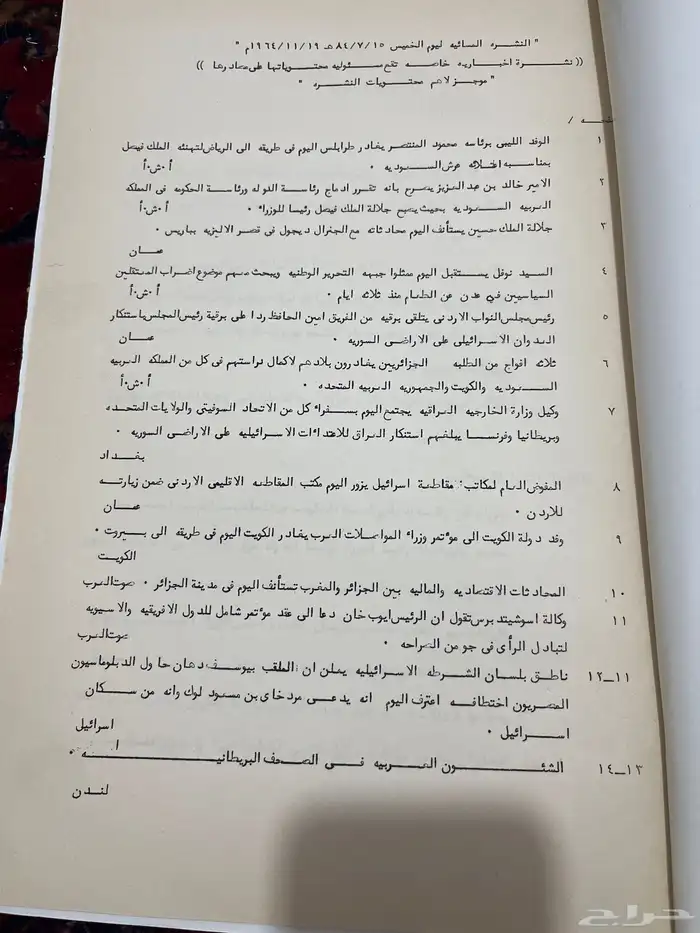 " النشره المسائيه ليوم الخميس ٨٤/٧/١٥ هـ ١٩٦٤/١١/١٩م "
(( نشرة اخباريه خاصه تقع مسئوليه محتوياتها على مصادرها ))
" موجز لاهم محتويات النشره "
صفحه /
١ الوفد الليبى برئاسه محمود المنتصر يغادر طرابلس اليوم فى طريقه الى الرياض لتهنئه الملك فيصل
بمناسبه اعتلائه عرش السعوديه ٠ أ ٠ش٠أ
٢ الامير خالد بن عبد العزيز يصرح بانه تقرر ادماج رئاسة الدوله ورئاسة الحكومه فى المملكه
العربيه السعوديه بحيث يصبح جلالة الملك فيصل رئيسا للوزراء ٠ أ ٠ش٠أ
٣ جلالة الملك حسين يستأنف اليوم محادثاته مع الجنرال ديجول فى قصر الاليزيه بباريس ٠
عمان
٤ السيد نوفل يستقبل اليوم ممثلوا جبهه التحرير الوطنيه ويبحث معهم موضوع اضراب المعتقلين
السياسيين في عدن عن الطعام منذ ثلاثه ايام ٠ أ ٠ش٠أ
٥ رئيس مجلس النواب الاردنى يتلقى برقيه من الفريق امين الحافظ ردا على برقية رئيس المجلس باستنكار
العدوان الاسرائيلى على الاراضى السوريه ٠ عمان
٦ ثلاثه افواج من الطلبه الجزائريين يغادرون بلادهم لاكمال دراستهم فى كل من المملكه العربيه
السعوديه والكويت والجمهوريه العربيه المتحده ٠ أ ٠ش٠أ
٧ وكيل وزارة الخارجيه العراقيه يجتمع اليوم بسفراء كل من الاتحاد السوفيتى والولايات المتحده
وبريطانيا وفرنسا يبلغهم استنكار العراق للاعتداءات الاسرائيليه على الاراضى السوريه ٠
بغداد
٨ المفوض العام لمكاتب مقاطعة اسرائيل يزور اليوم مكتب المقاطعه الاقليمى الاردنى ضمن زيارته
للاردن ٠ عمان
٩ وفد دولة الكويت الى مؤتمر وزراء المواصلات العرب يغادر الكويت اليوم فى طريقه الى بيروت ٠
الكويت
١٠ المحادثات الاقتصاديه والماليه بين الجزائر والمغرب تستأنف اليوم فى مدينة الجزائر ٠ صوت العرب
١١ وكالة اسوشيتد برس تقول ان الرئيس ايوب خان دعا الى عقد مؤتمر شامل للدول الافريقيه والاسيويه
لتبادل الرأى فى جو من الصراحه ٠ صوت العرب
١١ــ١٢ ناطق بلسان الشرطه الاسرائيليه يعلن ان الملقب بيوسف دهان حاول الدبلوماسيون
المصريون اختطافه اعترف اليوم انه يدعى مردخاى بن مسعود لوك وانه من سكان
اسرائيل ٠ اسرائيل
١٣ــ١٤ الشئون العربيه فى الصحف البريطانيه ٠
لندن
حراج